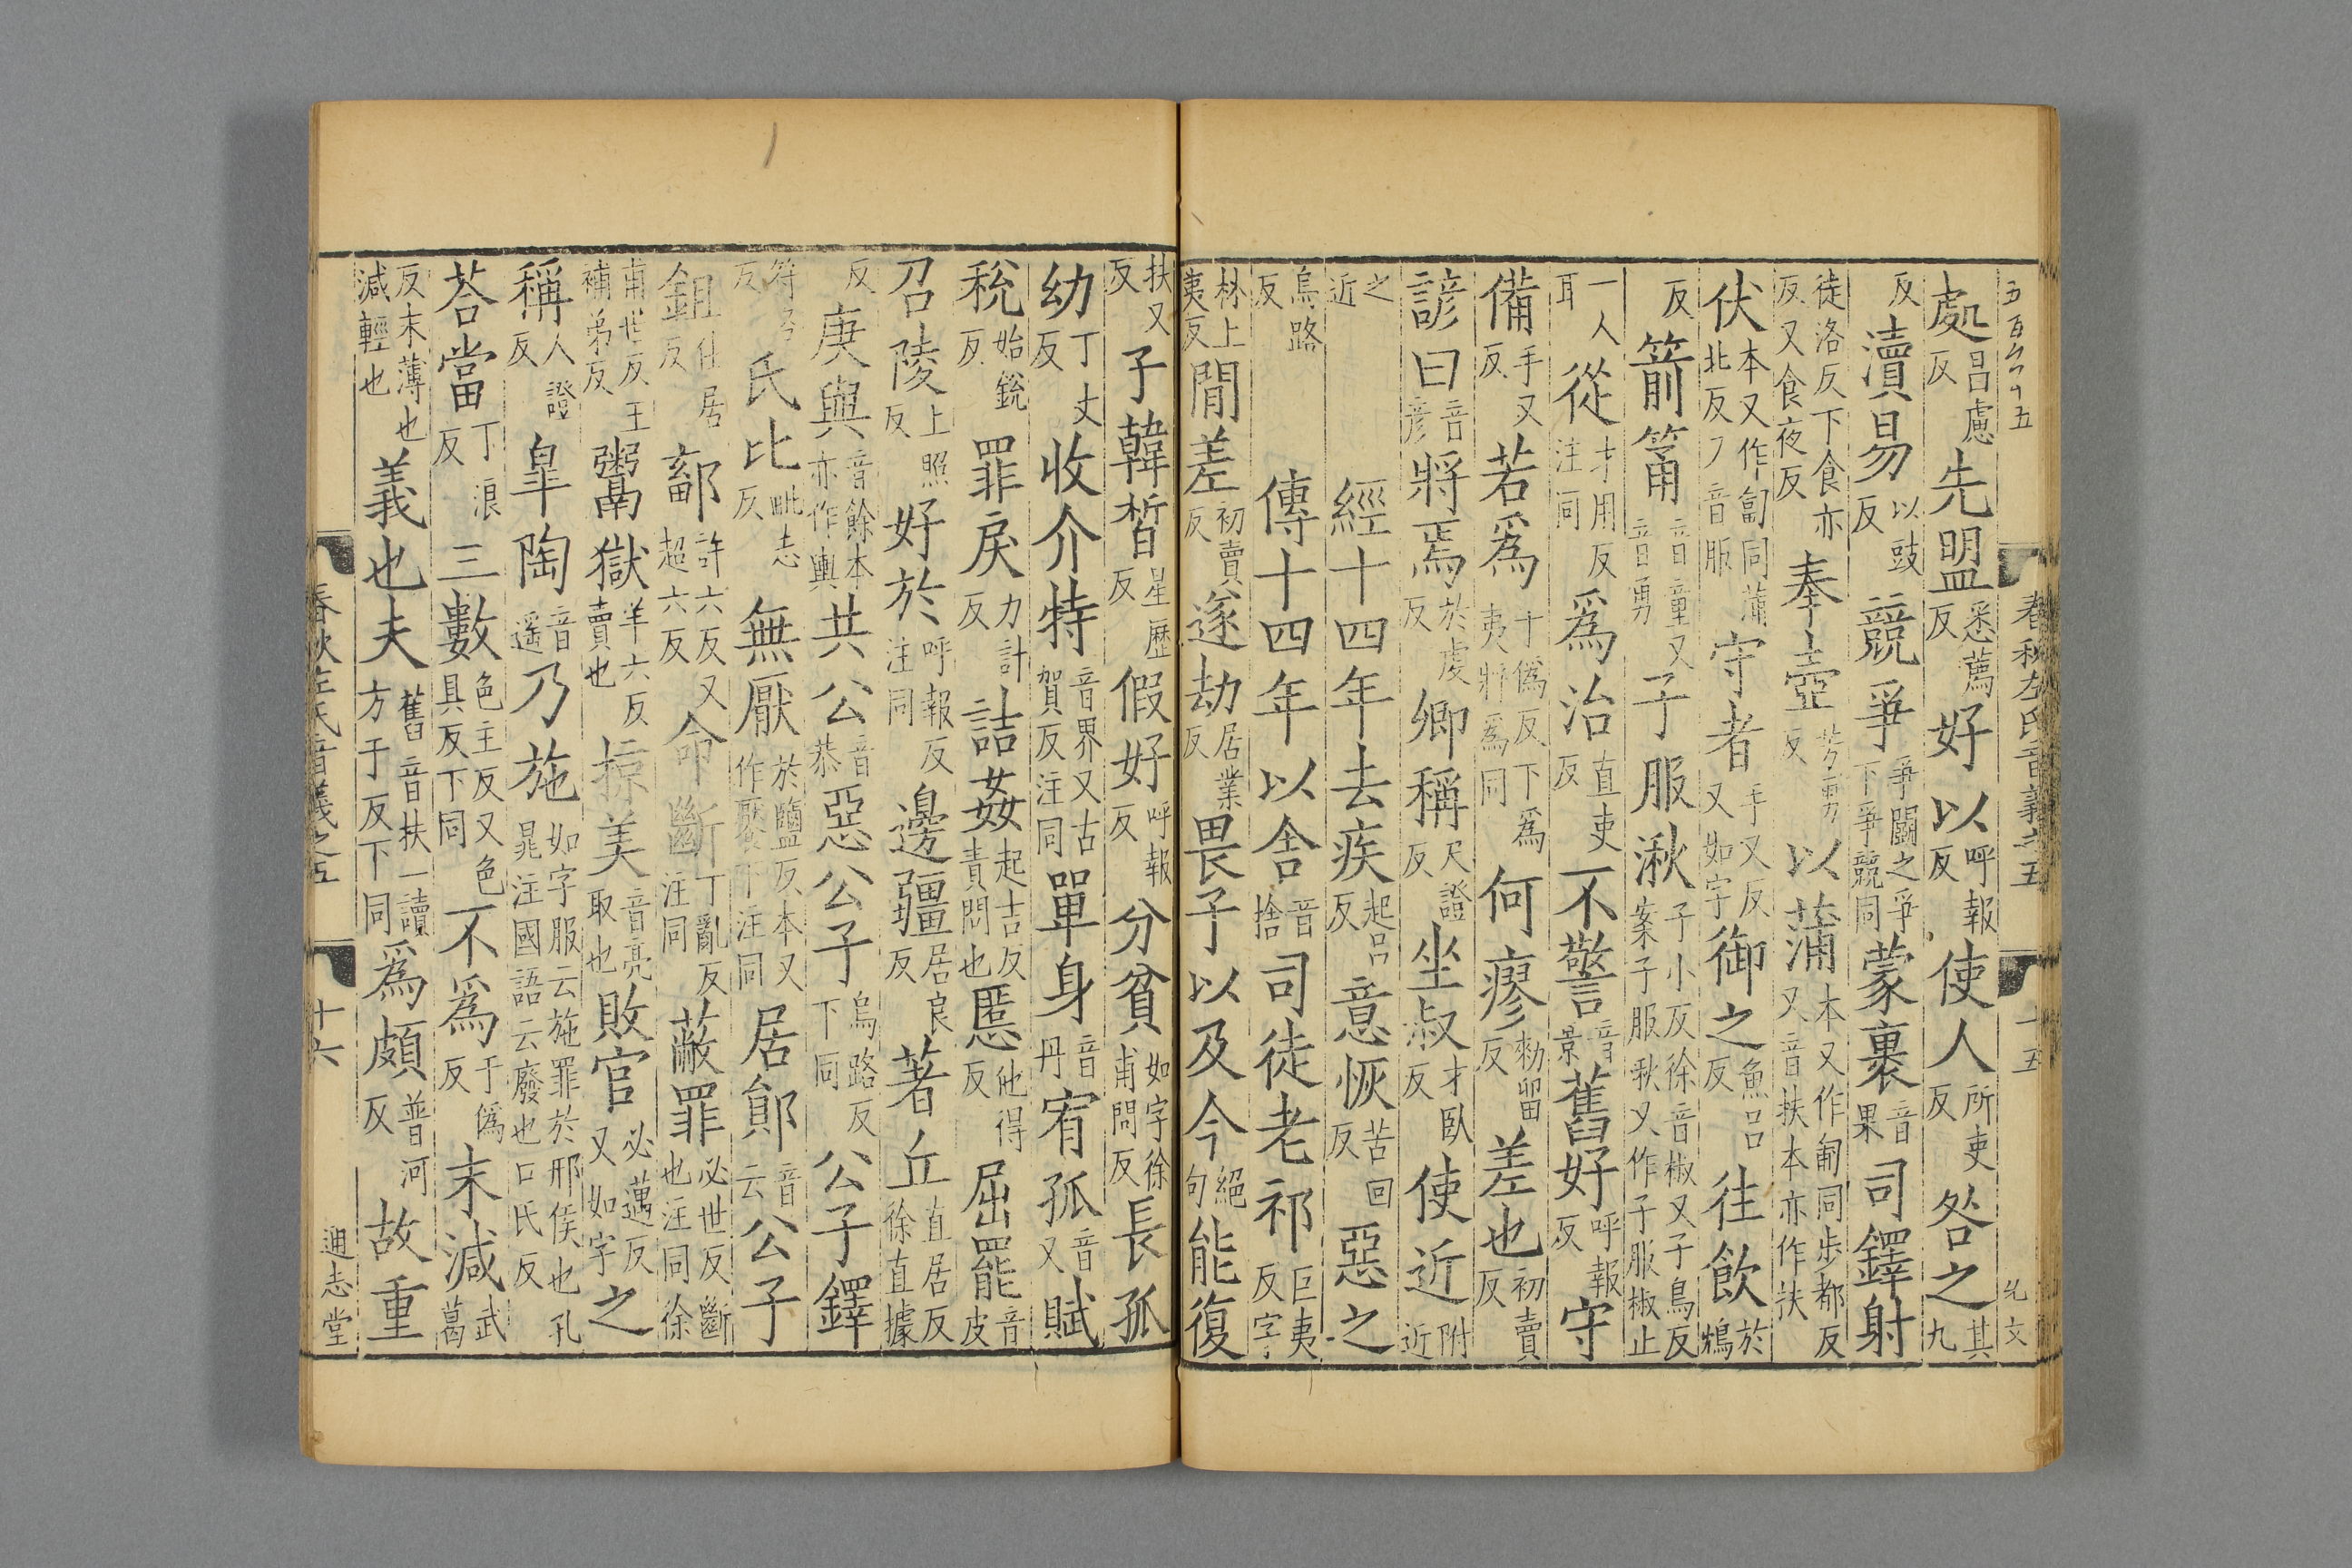 春秋左氏音義之五
十五
處昌慮反先盟悉薦反好以呼報反使人所吏反咎之其九
反瀆易以豉反競爭爭鬭之爭下爭競同蒙裹音果司鐸射
徒洛反下食亦反又食夜反奉壺芳勇反以蒲本又作匍同步都反又音扶本亦作扶
伏本又作匐同蒲北反又音服守者手又反又如字御之魚呂反往飲於鴆
反箭筩音童又音勇子服湫子小反徐音椒又子鳥反案子服湫又作子服椒止
一人耳從才用反注同爲治直吏反不警音景舊好呼報反守
備手又反若爲于僞反下爲夷將爲同何瘳勑留反差也初賣反
諺曰音彥將焉於虔反鄉稱尺證反坐叔才臥反使近附近
之近經十四年去疾起呂反意恢苦回反惡之
烏路反傳十四年以舍音捨司徒老祁巨夷反字
林上夷反閒差初賣反遂劫居業反畏子以及今絕句能復
扶又反子韓晳星歷反假好呼報反分貧如字徐甫問反長孤
幼丁丈反收介特音界又古賀反注同單身音丹宥孤音又賦
稅始銳反罪戾力計反詰姦起吉反責問也慝他得反屈罷音皮
召陵上照反好於呼報反注同邊疆居良反著丘直居反徐直據
反庚輿音餘本亦作與共公音恭惡公子烏路反下同公子鐸
氏比毗志反無厭於鹽反本又作饜下注同居鄖音云公子
鉏仕居反鄐許六反又超六反命斷丁亂反注同蔽罪必世反斷也注同徐
甫世反王補弟反鬻獄羊六反賣也掠美音亮取也敗官必邁反又如字之
稱人證反皐陶音遥乃施如字服云施罪於邢侯也孔晁注國語云廢也
荅當丁浪反三數色主反又色具反下同不爲于僞反末減武葛
反末薄也減輕也義也夫舊音扶一讀方于反下同爲頗普河反故重
春秋左氏音義之五
十六
通志堂